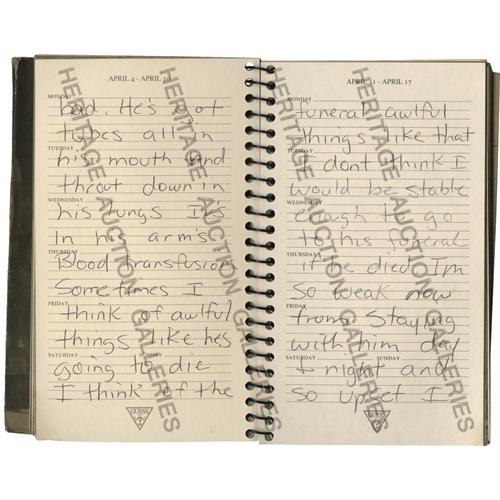 APRIL 4 - APRIL 10
MONDAY
bad. He's got
tubes all in
TUESDAY
his mouth and
throat down in
WEDNESDAY
his lungs IVs
In his arms
THURSDAY
Blood transfusion
Sometimes I
FRIDAY
think of awful
things like hes
SATURDAY SUNDAY
going to die
I think of the
GUESS
?
APRIL 11 - APRIL 17
MONDAY
funeral awlful
things like that
TUESDAY
I dont think I
would be stable
WEDNESDAY
enough to go
to his funeral
THURSDAY
if he died I'm
so weak now
FRIDAY
from staying
with him day
SATURDAY SUNDAY
& night and
so upset I
GUESS
?
HERITAGE AUCTION GALLERIES
HERITAGE AUCTION GALLERIES
HERITAGE AUCTION GALLERIES
HERITAGE AUCTION GALLERIES